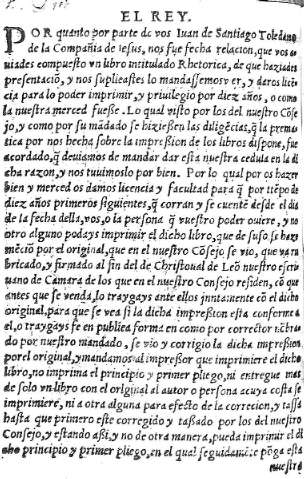 EL REY.
POR quanto por parte de vos Iuan de Santiago Toledano
de la Compañia de iesus, nos fue fecha relacion, que vos a-
uiades compuesto vn libro intitulado Rhetorica, de que haziades
presentaciõ, y nos suplicastes lo mandassemos ver, y daros licẽ
cia para lo poder imprimir, y priuilegio por diez años, o como
la nuestra merced fuesse. Lo qual visto por los del nuestro Cõse
jo, y como por su mãdado se hiziessen las diligẽcias, q̃ la prema
tica por nos hecha sobre la impression de los libros dispone, fue
acordado, q̃ deuiamos de mandar dar esta nuestra cedula en la di
cha razon, y nos tuuimoslo por bien. Por lo qual por os hazer
bien y merced os damos licencia y facultad para q̃ por tiẽpo de
diez años primeros siguientes, q̃ corran y se cuentẽ desde el dia
de la fecha della, vos, o la persona q̃ vuestro poder ouiere, y no
otro alguno podays imprimir el dicho libro, que de suso se haze
mẽciõ por el original, que en el nuestro Cõsejo se vio, que va ru
bricado, y firmado al fin del de Christoual de Leõ nuestro escri
uano de Camara de los que en el nuestro Consejo residen, cõ que
antes que se venda, lo traygays ante ellos juntamente cõ el dicho
original, para que se vea si la dicha impression esta conforme a
el, o traygays fe en publica forma en como por corrector nõbra
do por nuestro mandado, se vio y corrigio la dicha impression
por el original, y mandamos al impressor que imprimiere el dicho
libro, no imprima el principio y primer pliego, ni entregue mas
de solo vn libro con el original al autor o persona a cuya costa se
imprimiere, ni a otra alguna para efecto de la correcion, y tassa
hasta que primero este corregido y tassado por los del nuestro
Consejo, y estando assi, y no de otra manera, pueda imprimir el di
cho principio y primer pliego, en el qual seguidamẽte põga esta
nuestra